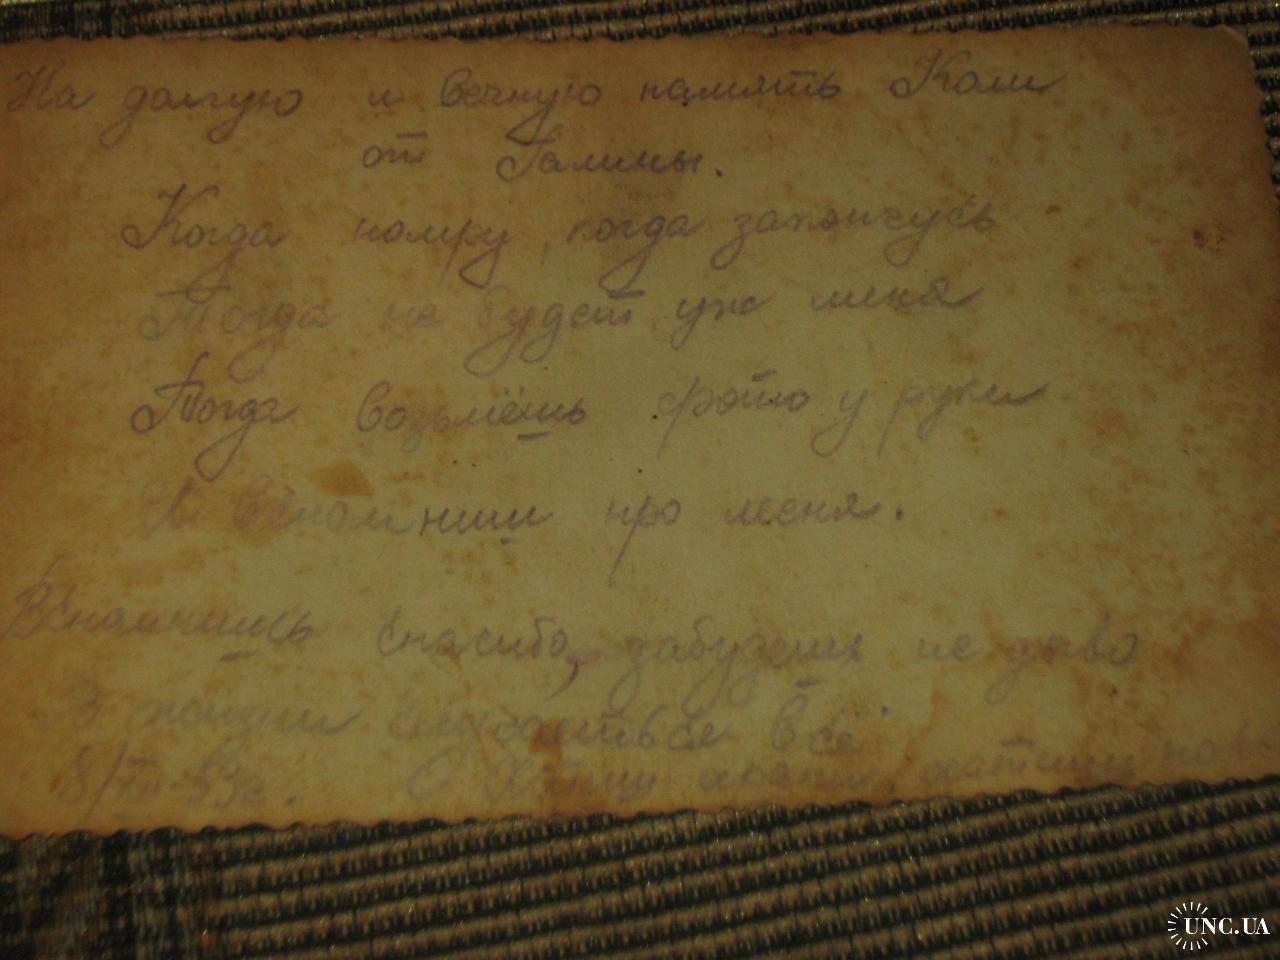 На долгую и вечную память Коли
от Галины.
Когда помру, когда закончусь
Тогда не будет уж меня
Тогда возьмёшь фото у руки
И вспомниш про меня.
Вспомнишь спасибо, забудешь не диво
В жизни случаеться всё
8/XII-53г.
UNC.UA